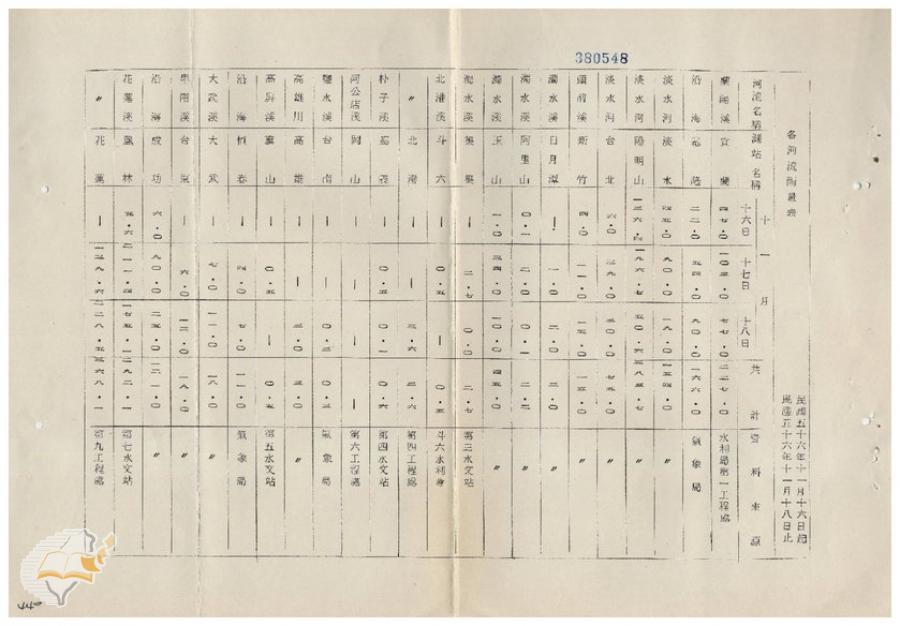 380548
各河流雨量表
民國五十六年十一月十六日起
民國五十六年十一月十八日止
河流名稱 測站名稱 十一月 十六日 十七日 十八日 共計 資料來源
蘭陽溪 宜蘭 四七·〇 一〇三·〇 七七·〇 二二七·〇 水利局第一工程處
沿海 基隆 二二·〇 五四·〇 九〇·〇 一六六·〇 氣象局
淡水河 淡水 四五·〇 九〇·〇 一九·〇 一五四·〇 〃
淡水河 陽明山 〃
淡水河 台北 六·〇 三九·〇 三〇·〇 七五·〇 〃
頭前溪 新竹 四·〇 〃
濁水溪 日月潭 〡 一·〇 二·〇 三·〇 〃
濁水溪 阿里山 〇·一 二·〇 〃
濁水溪 玉山 一·〇 三四·〇 一〇·〇 四五·〇 〃
濁水溪 〡 二·七 二·七 第三水文站
北港溪 斗六 〡 〇·五 〡 〇·五 斗六水利會
〃 北港 〡 〡 三·六 三·六 第四工程處
朴子溪 嘉義 〡 〇·五 〇·一 〇·六 第四水文站
阿公店溪 岡山 〡 〡 〡 〡 第六工程處
鹽水溪 台南 〡 〡 〇·三 〇·三 氣象局
高雄川 高雄 〡 〡 〃
高屏溪 旗山 〡 〇·五 〡 〇·五 第五水文站
沿海 恒春 〡 四·〇 七·〇 一一·〇 氣象局
大武溪 大武 〡 七·〇 一一·〇 一八·〇 〃
卑南溪 台東 〡 六·〇 一二·〇 一八·〇 〃
沿海 成功 六·〇 九〇·〇 二五·〇 一二一·〇 〃
花蓮溪 鳳林 五·六 二一一·四 一七五·一 三九二·一 第七水文站
〃 花蓮 〡 一三九·六 二二八·五 三六八·一 第九工程處